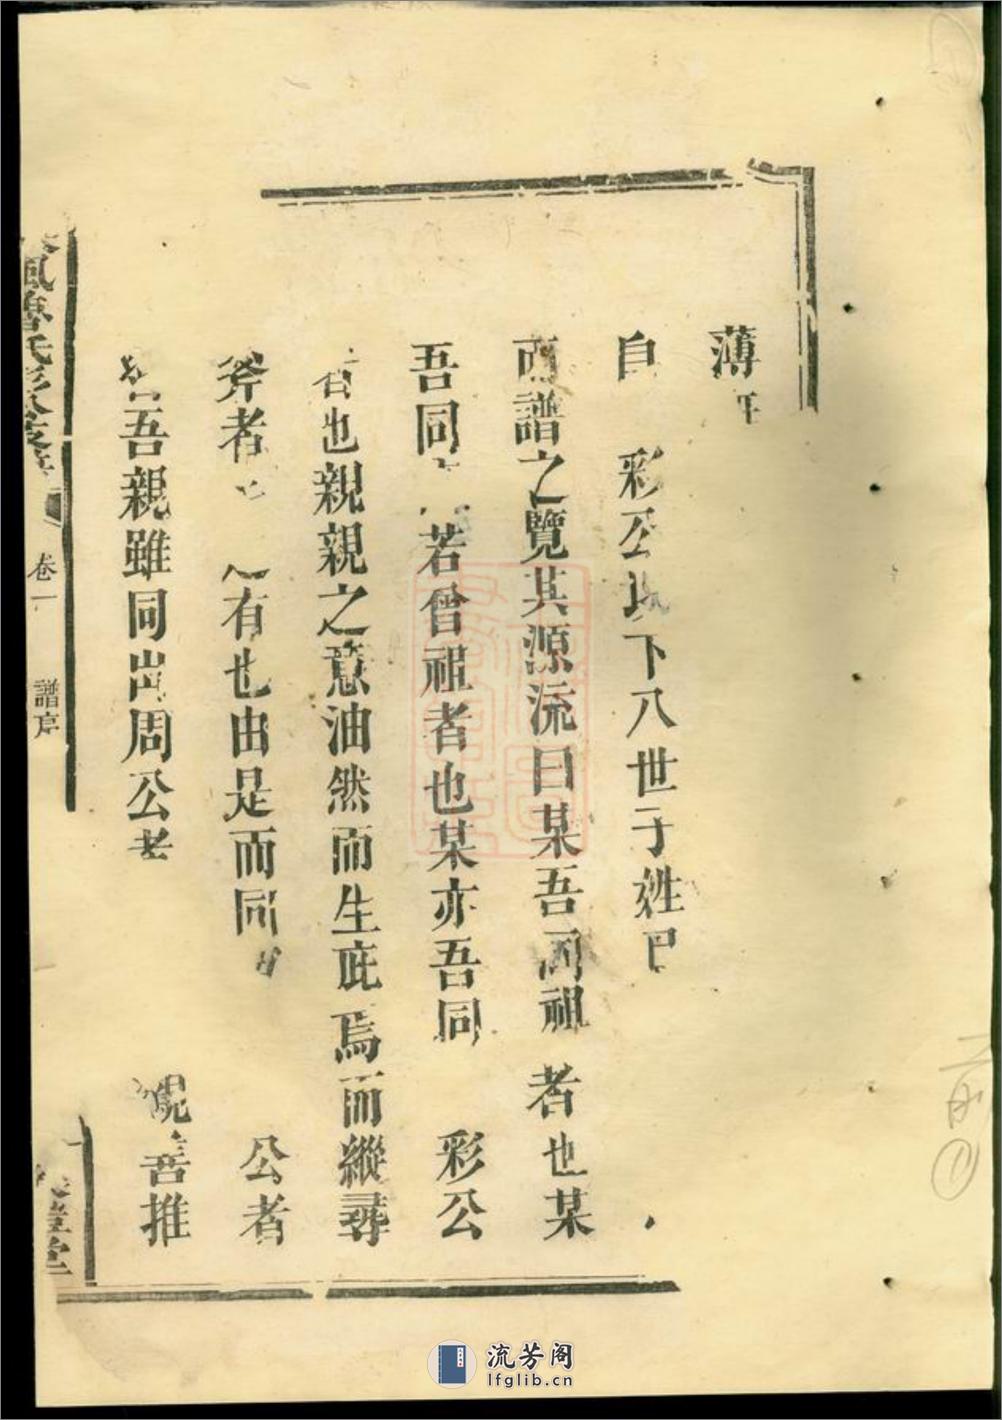 薄
自 彩公以下八世于姓
而譜之覽其源流曰某吾同祖者也某
吾同 若曾祖者也某亦吾同 彩公
者也親親之意油然而生庇焉而縱尋
斧者 有也由是而同 公者
吾親雖同出周公者 親善推
風魯氏 卷一 譜序
堂
流芳阁
lfglib.cn